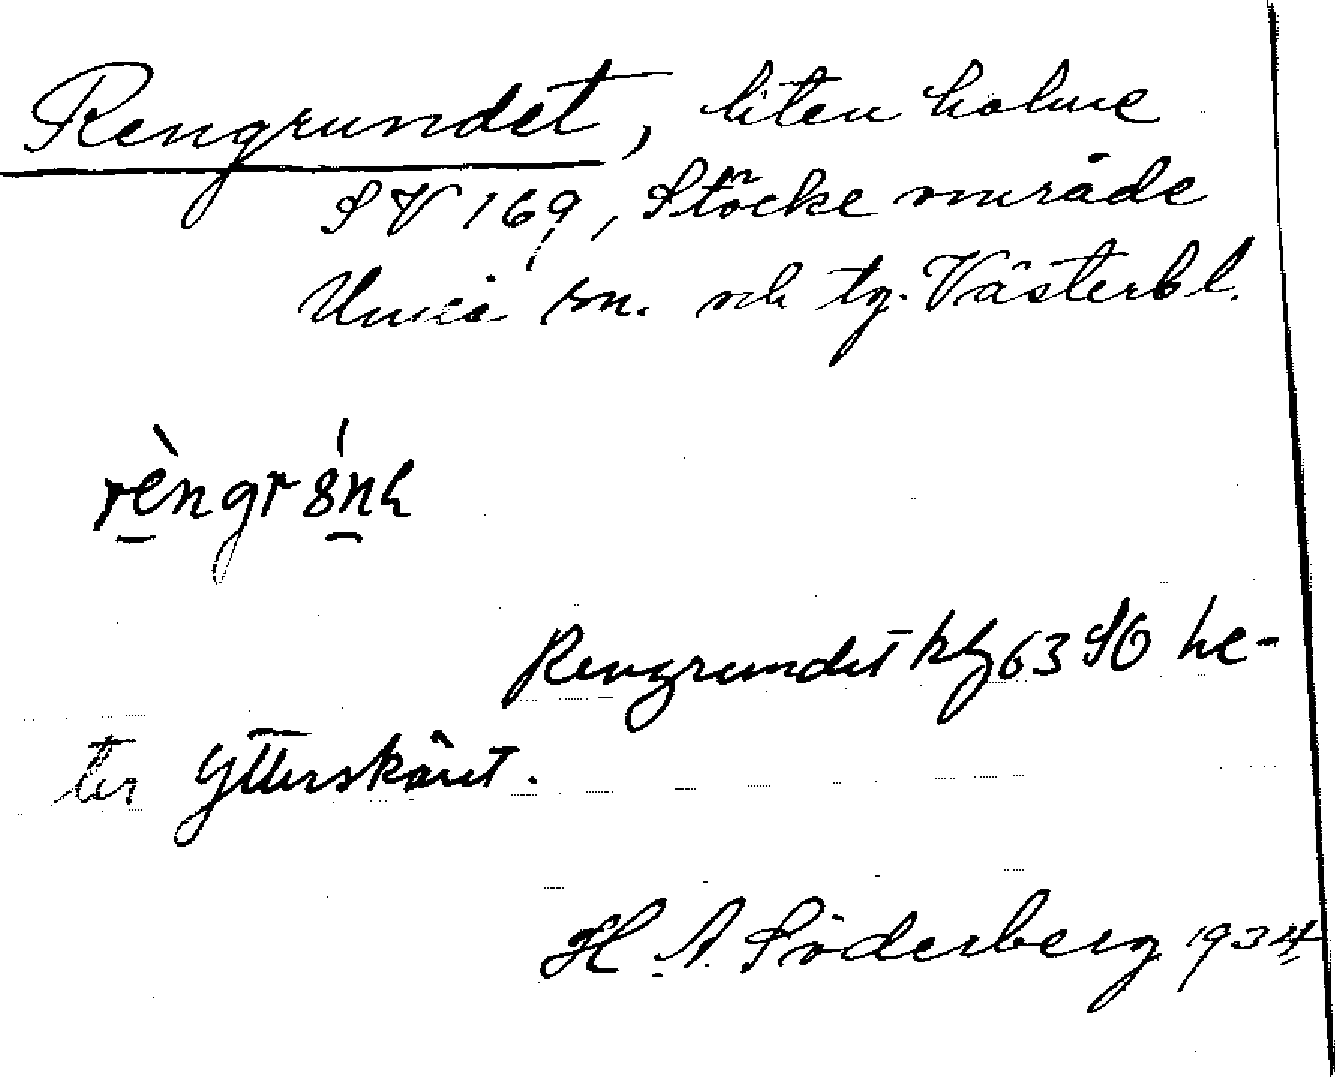 Rengrundet, liten holme
SV 169, Stöcke område
Umeå sn. och tg. Västerbl.
rèngrśnh
Rengrundet kbl 63 SO he-
ter Ytterskäret.
H. A. Söderberg 1934